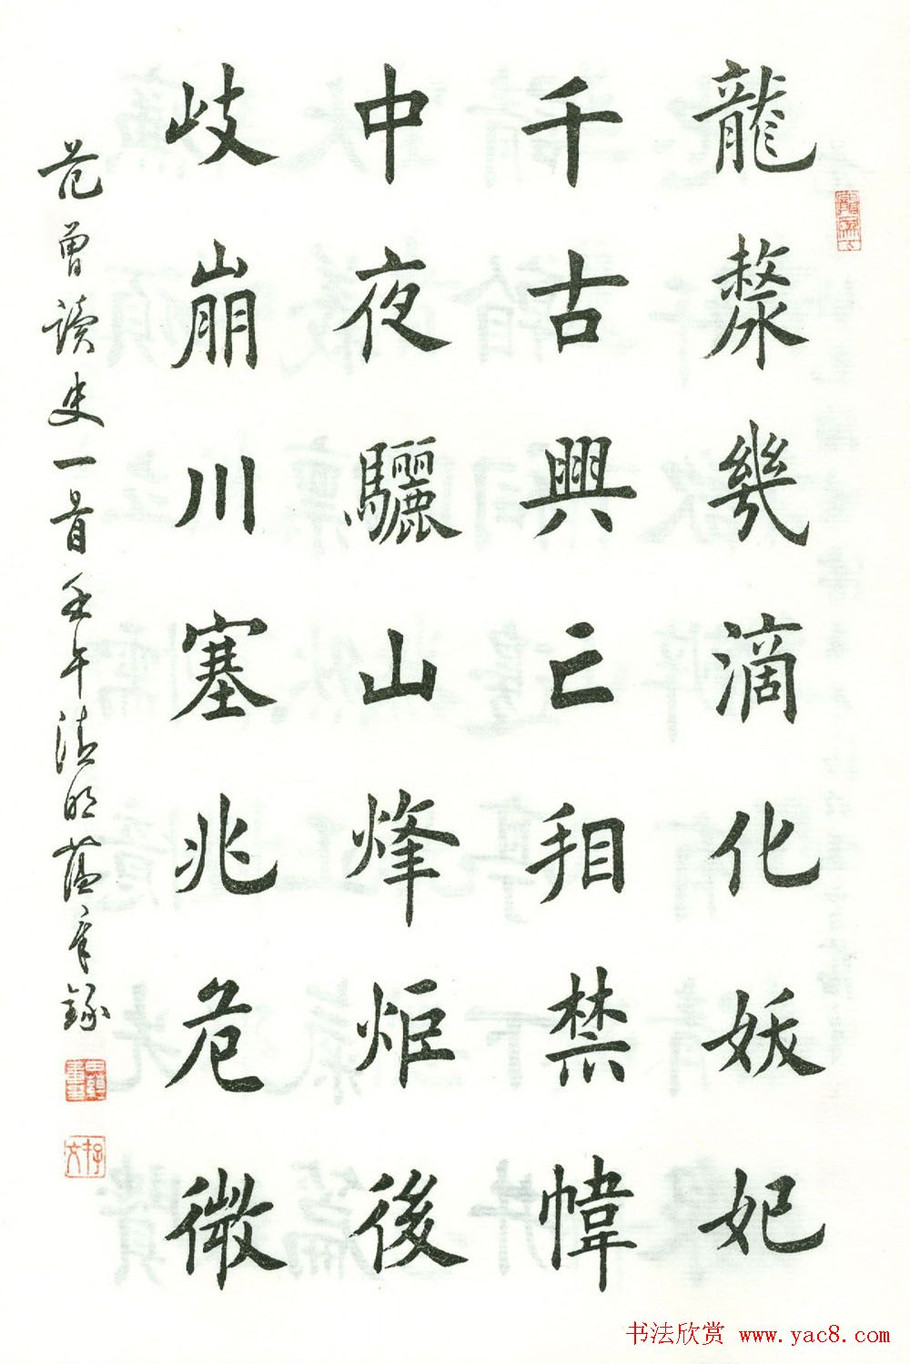 龍漦幾滴化妖妃
千古興亡相禁幃
中夜驪山烽炬後
歧崩川塞兆危微
范曾讀史一首壬午清明蘊章錄
书法欣赏 www.yac8.com